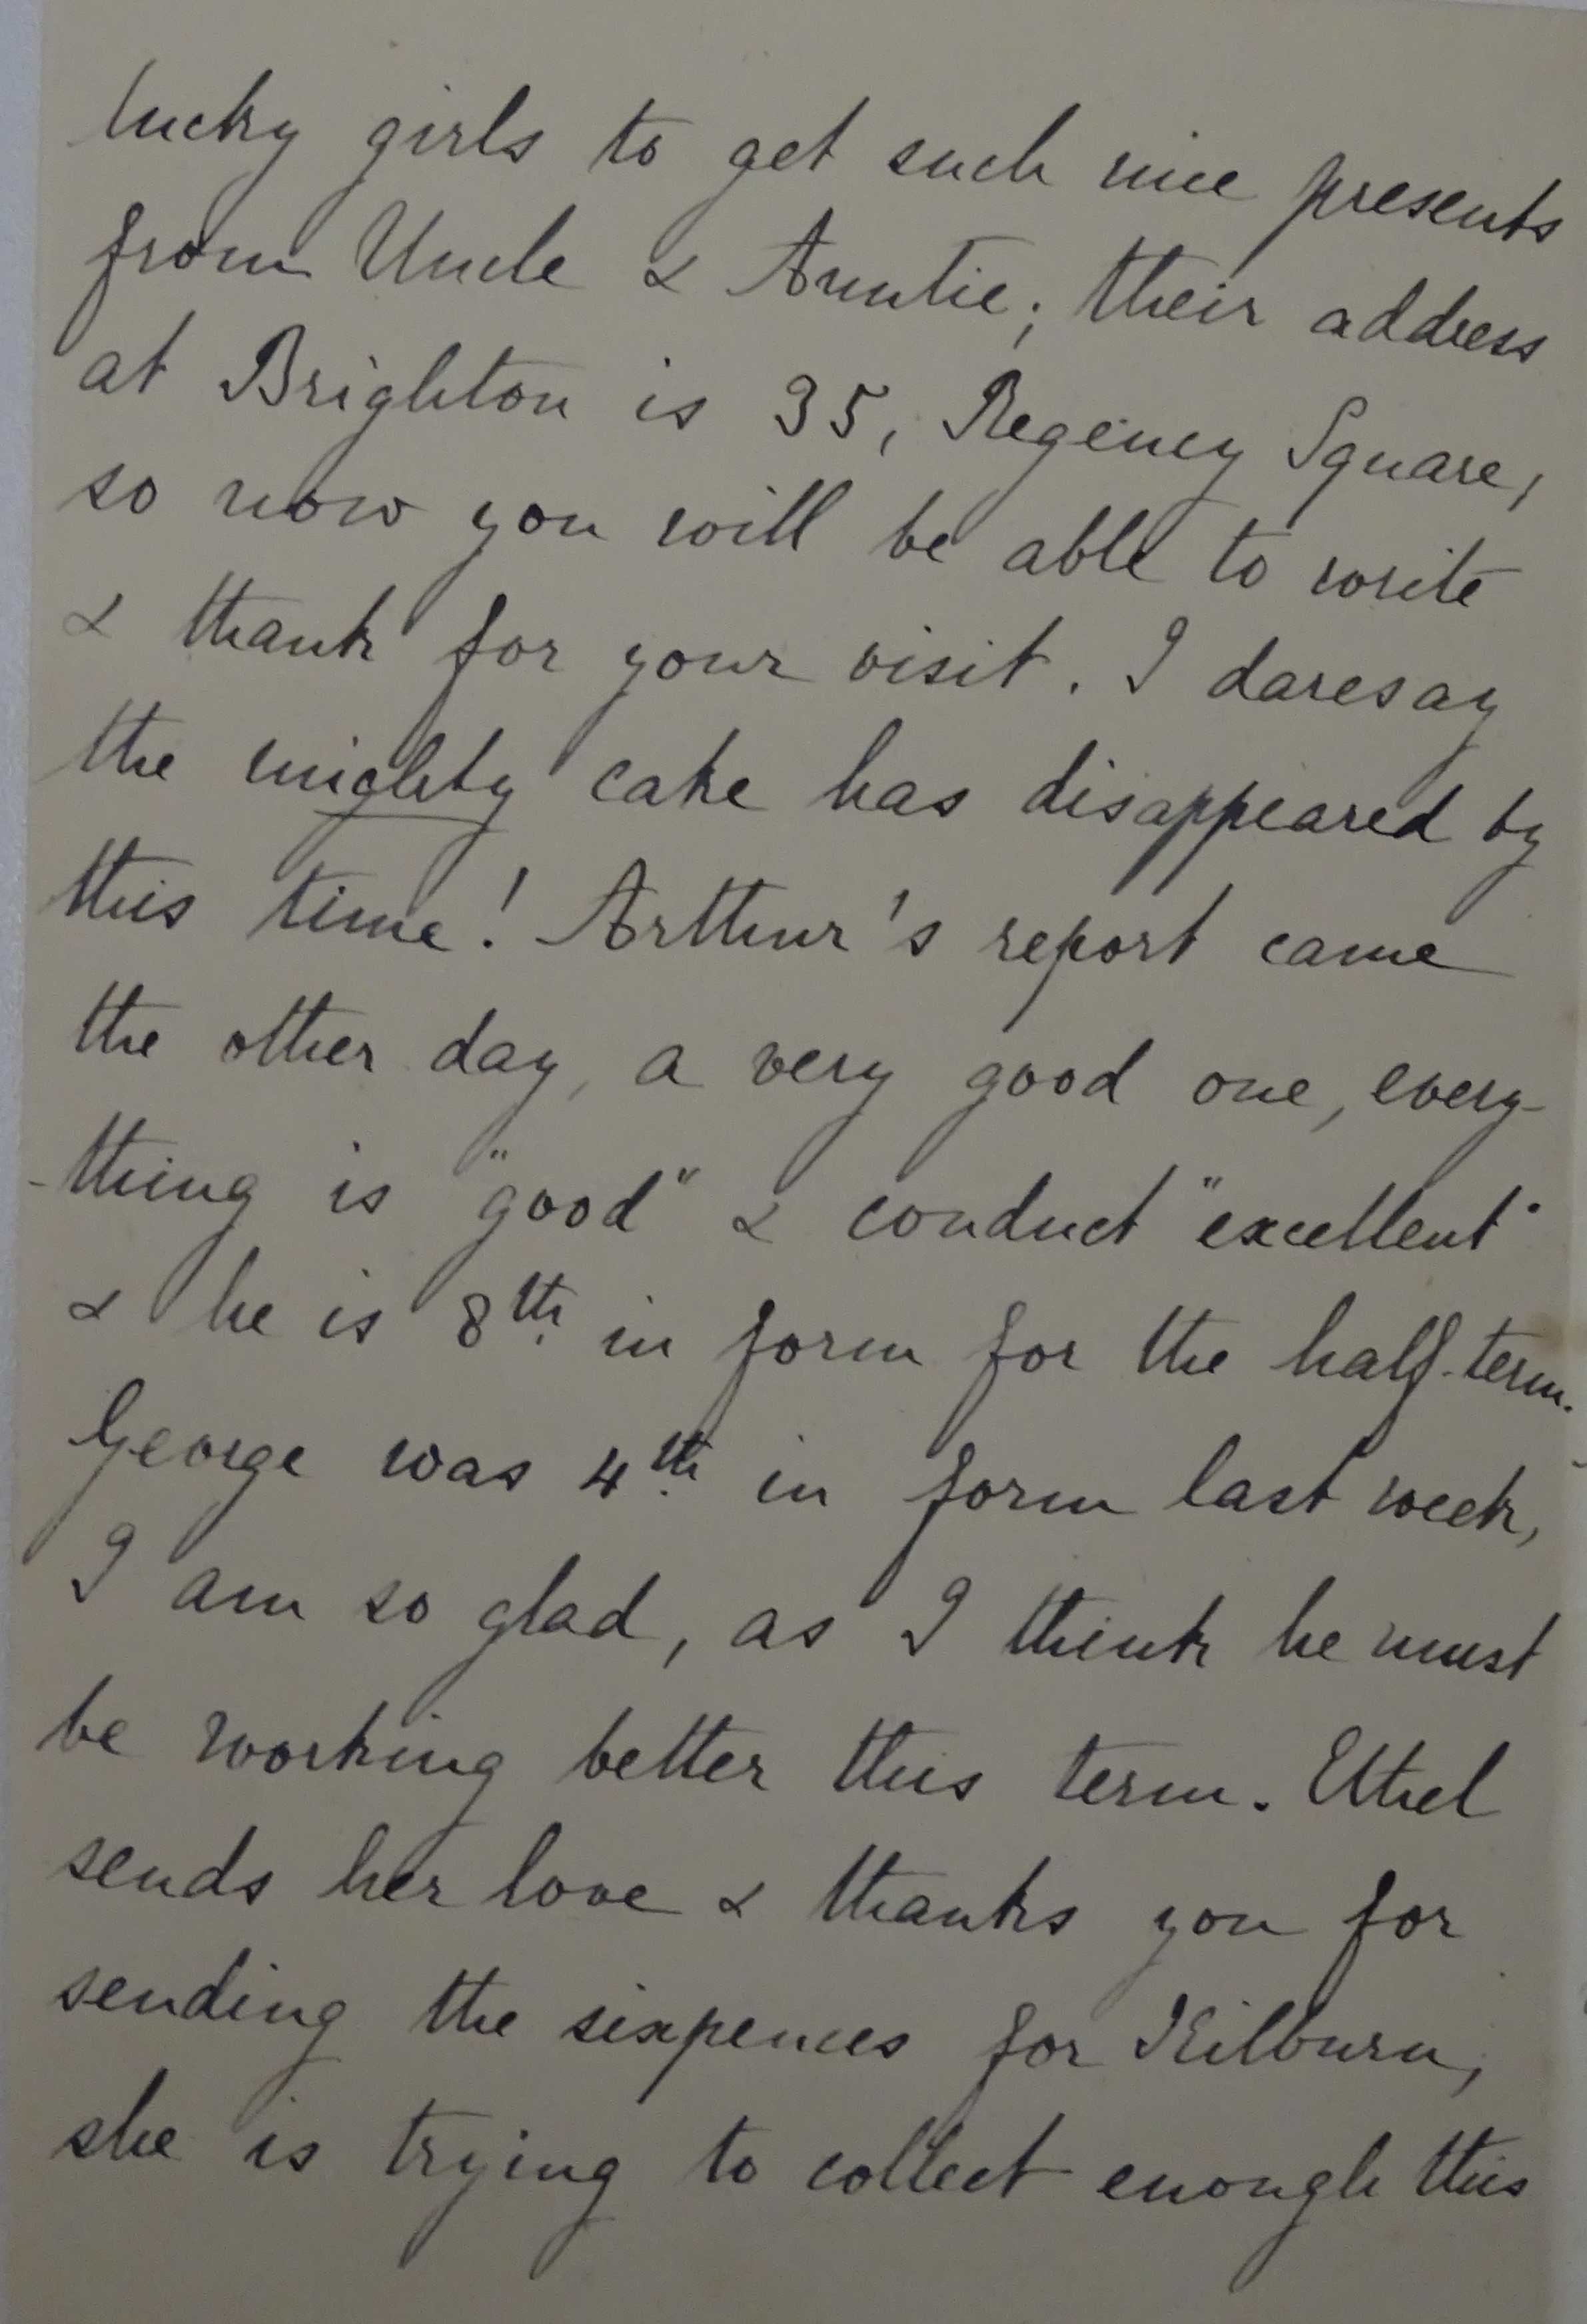 lucky girls to get such nice presents
from Uncle & Auntie; their address
at Brighton is 35, Regency Square,
so now you will be able to write
& thank for your visit. I daresay
the mighty cake has disappeared by
this time! Arthur's report came
the other day, a very good one, every-
-thing is "good" & conduct "excellent"
& he is 8th. in form for the half-term.
George was 4th. in form last week,
I am so glad, as I think he must
be working better this term. Ethel
sends her love & thanks you for
sending the sixpences for Kilburn,
she is trying to collect enough this